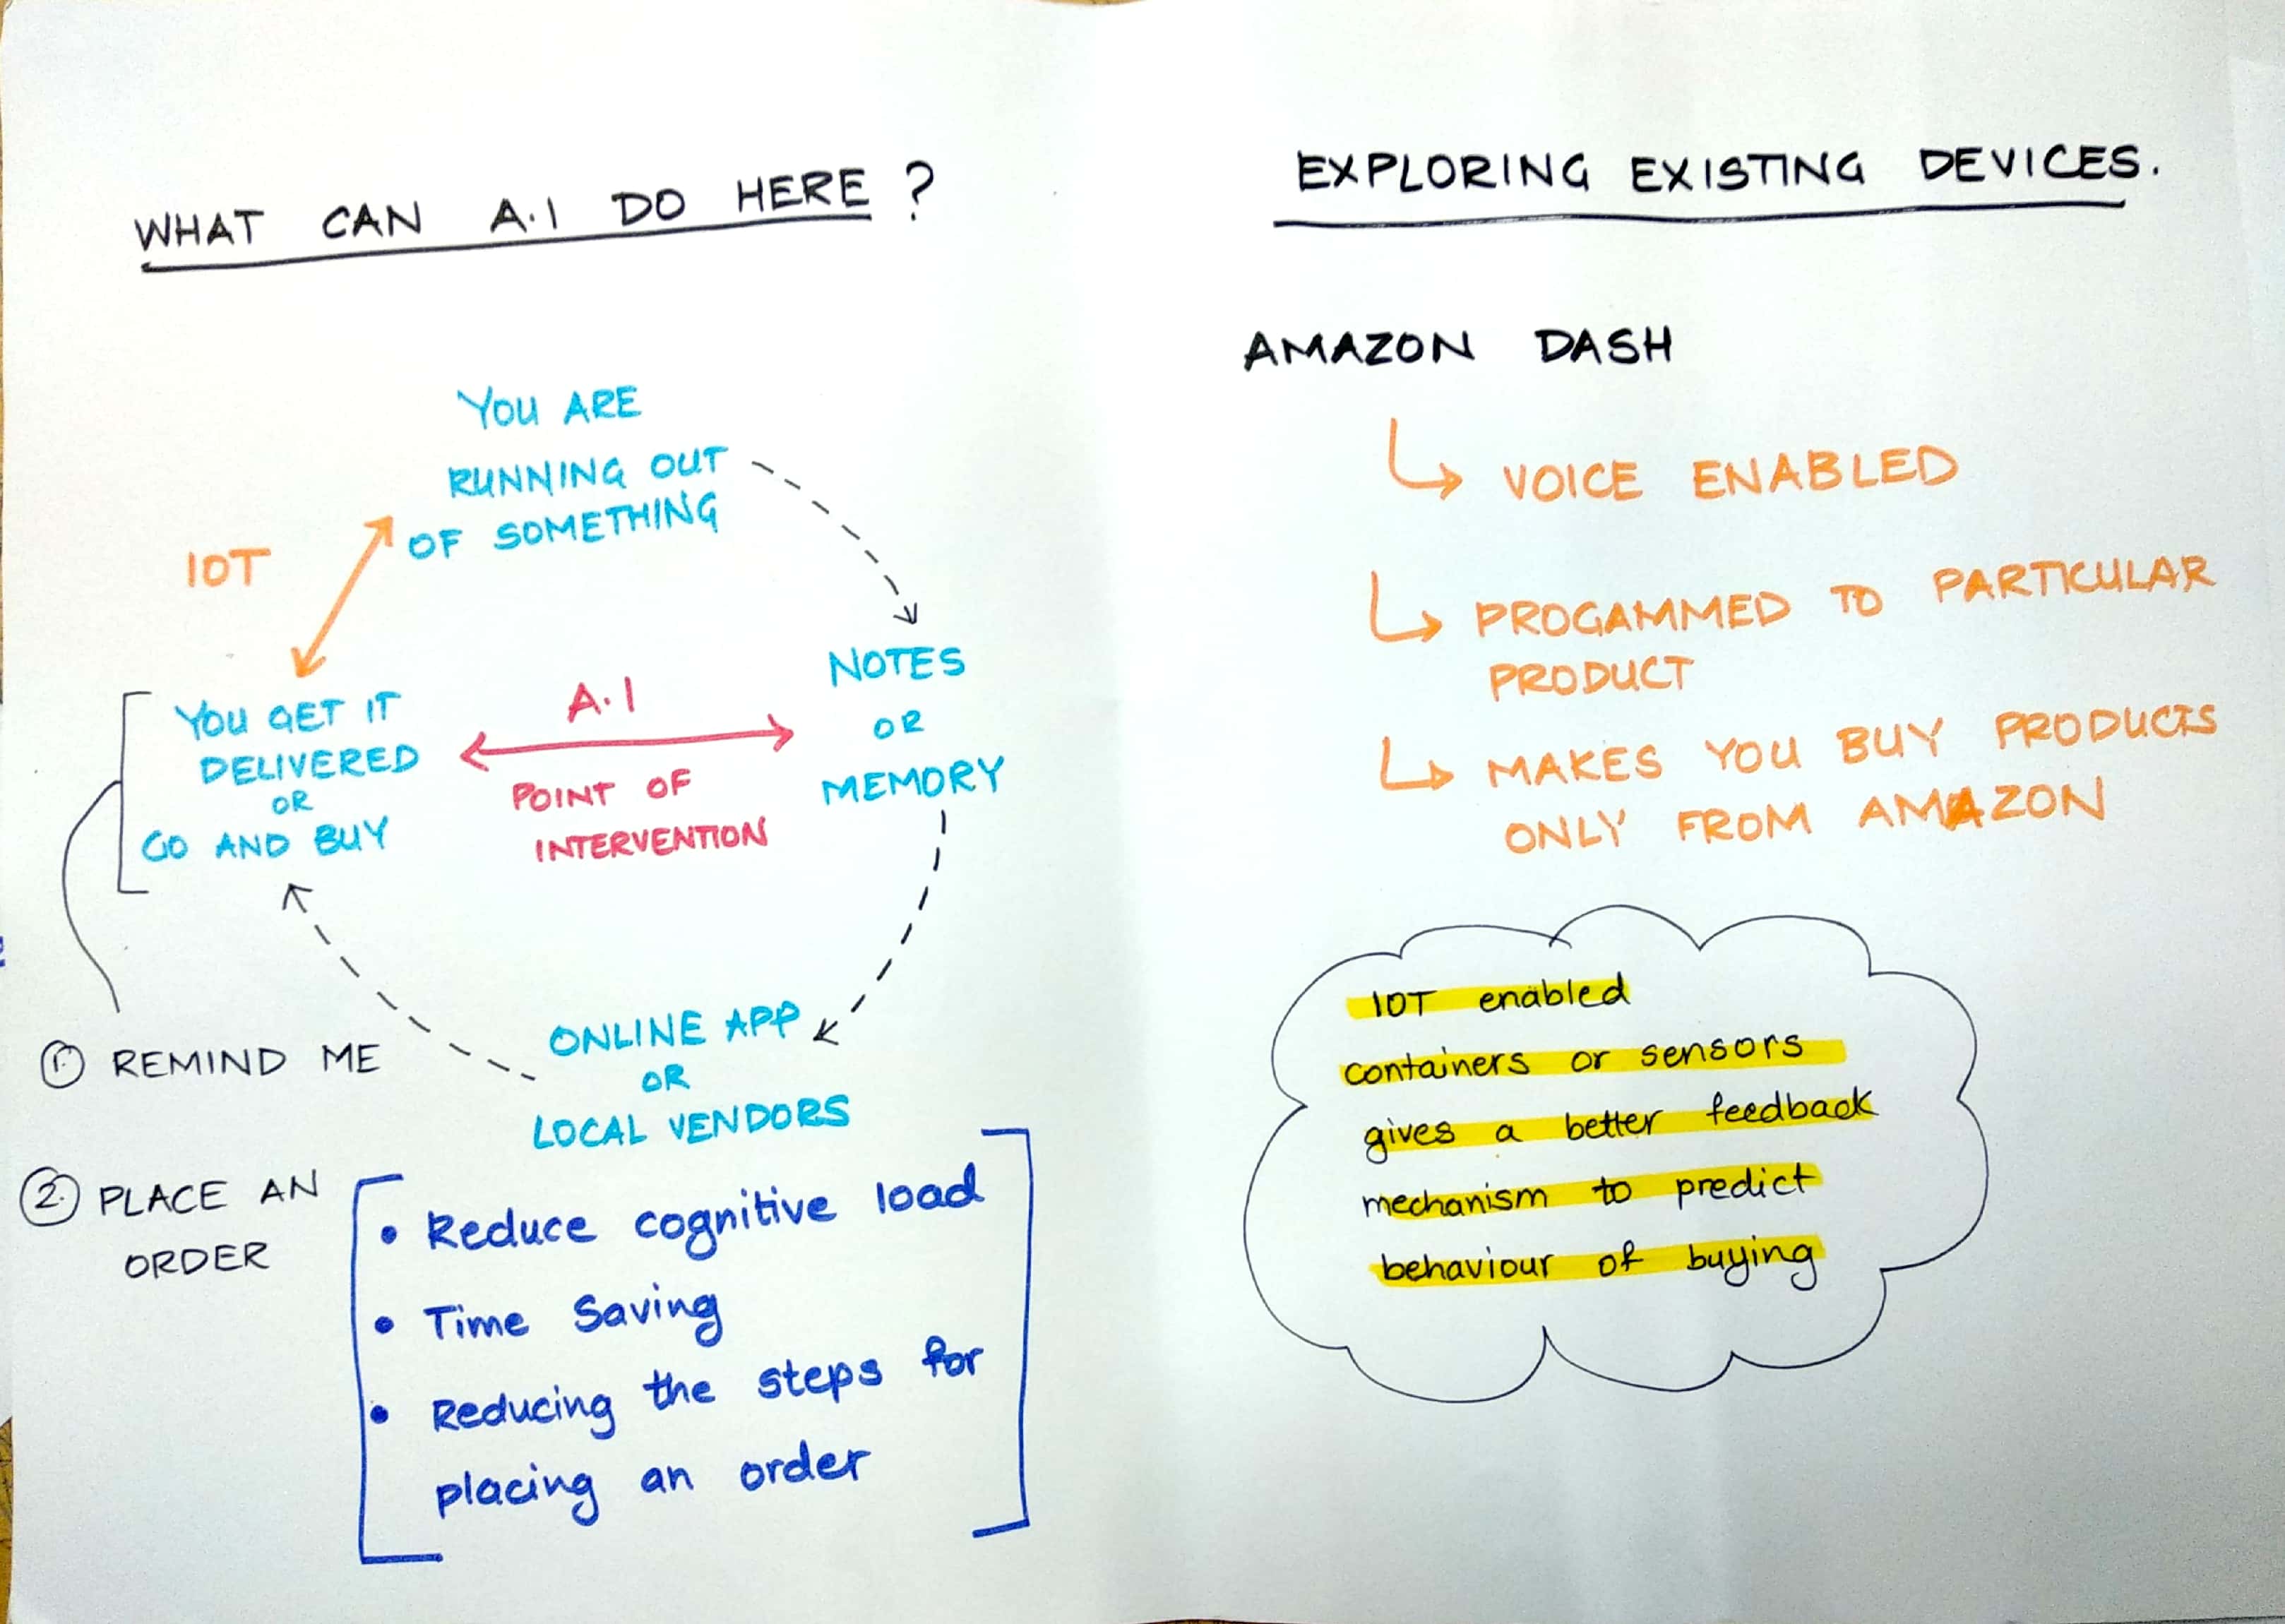 WHAT CAN A.I DO HERE ?
YOU ARE
RUNNING OUT
OF SOMETHING
IOT
NOTES
OR
MEMORY
A.I
POINT OF
INTERVENTION
YOU GET IT
DELIVERED
OR
GO AND BUY
ONLINE APP
OR
LOCAL VENDORS
1. REMIND ME
2. PLACE AN
ORDER
• Reduce cognitive load
• Time Saving
• Reducing the steps for
placing an order
EXPLORING EXISTING DEVICES.
AMAZON DASH
VOICE ENABLED
PROGAMMED TO PARTICULAR
PRODUCT
MAKES YOU BUY PRODUCTS
ONLY FROM AMAZON
IOT enabled
containers or sensors
gives a better feedback
mechanism to predict
behaviour of buying